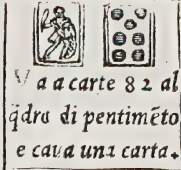 Va a carte 82 al
q̃dro di pentimẽto
e caua una carta.